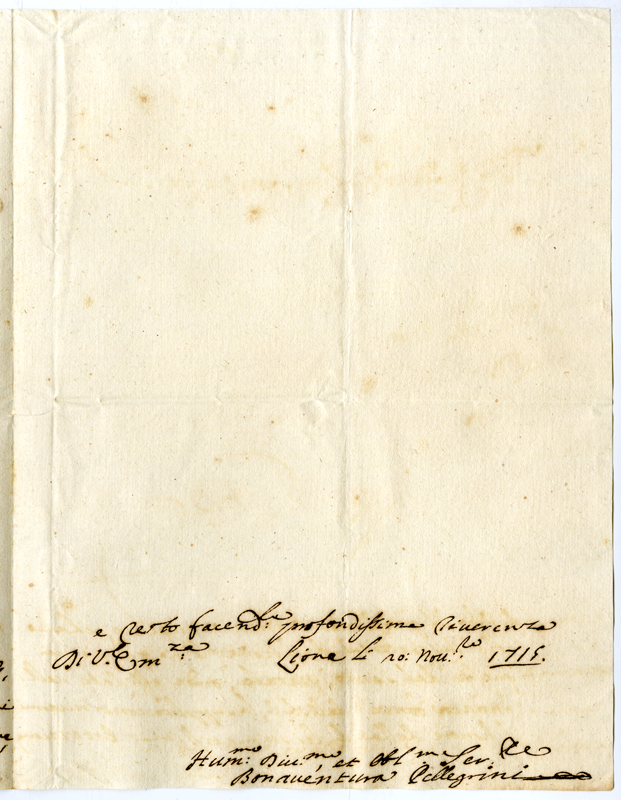 e resto facend.le profondissima riverenza
Di V.E. Em.za Liona li 20: Nov.re 1715.
Hum.mo Div.mo et Obl.mo Ser.re
Bonaventura Pellegrini